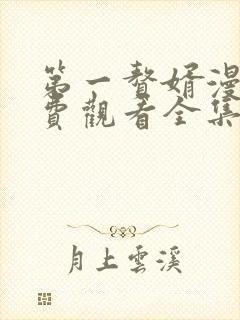 第一贅婿漫
費觀看全集
月上雲溪